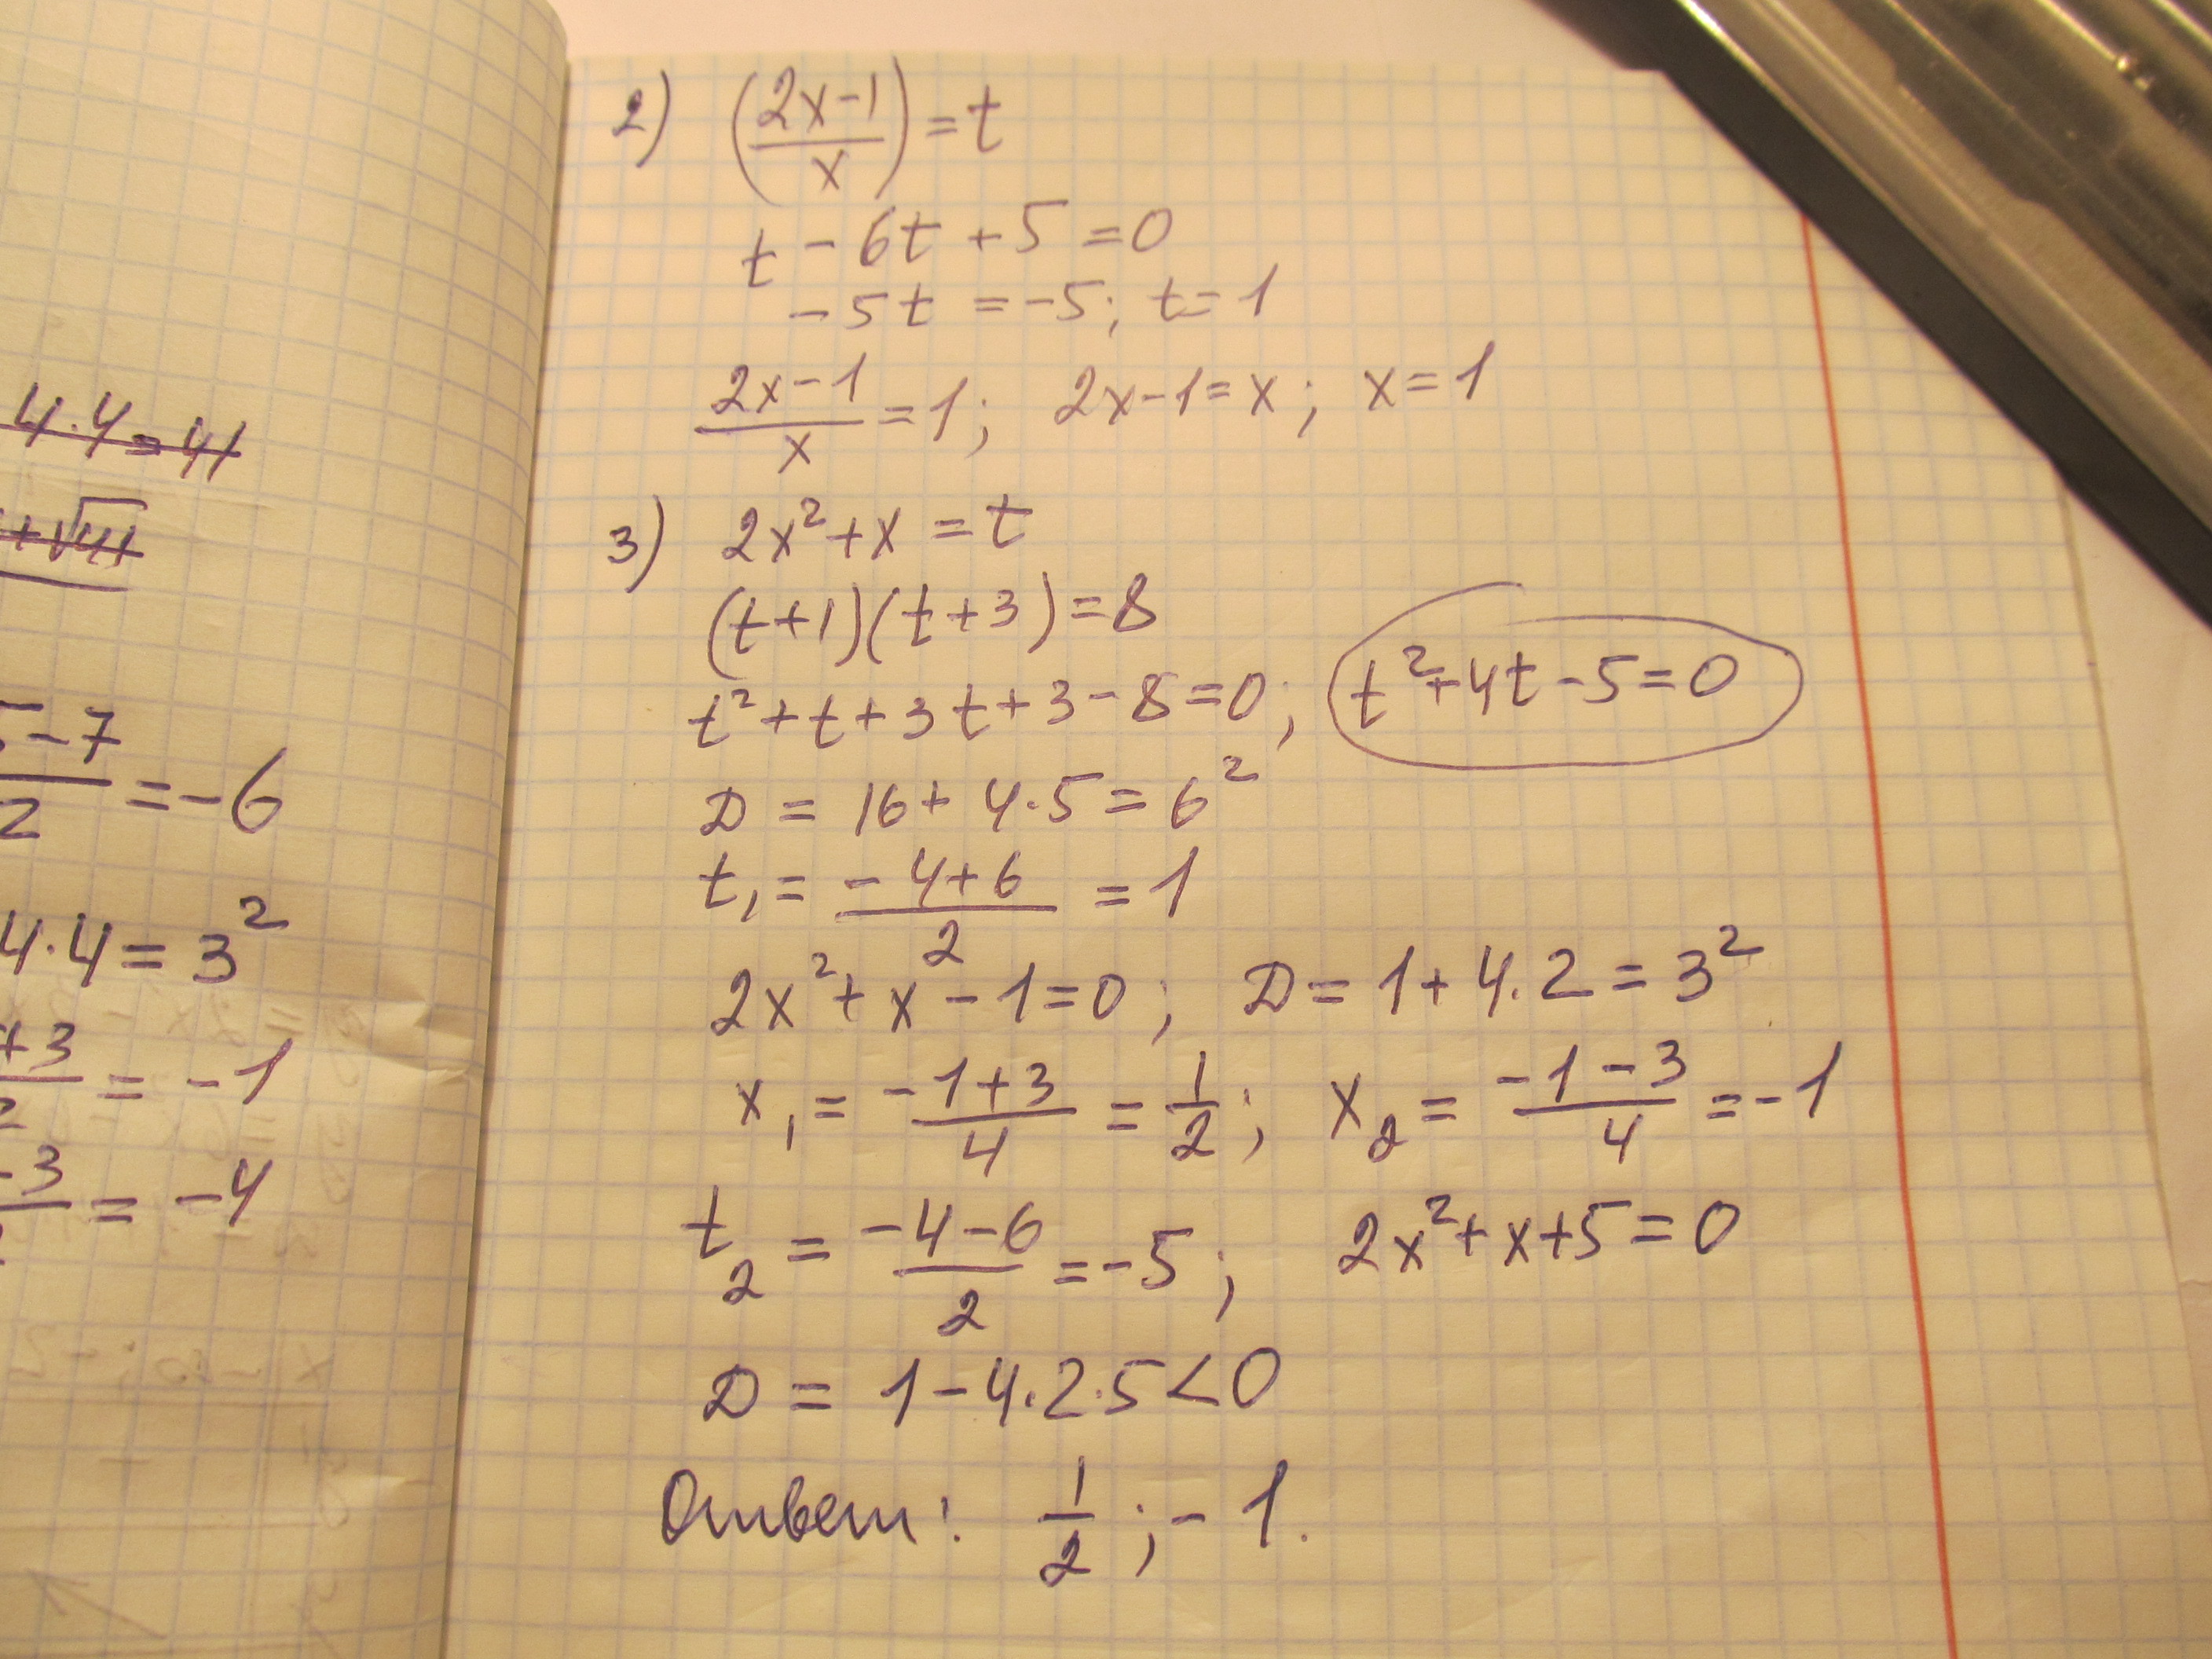 4·4=41
+√41
5-7/2 = -6
4·4 = 3²
+3/2 = -1
-3/2 = -4
2) ((2x-1)/x) = t
t - 6t + 5 = 0
-5t = -5; t = 1
(2x-1)/x = 1; 2x-1 = x; x = 1
3) 2x²+x = t
(t+1)(t+3) = 8
t²+t+3t+3-8=0; t²+4t-5=0
D = 16+4·5 = 6²
t₁ = (-4+6)/2 = 1
2x²+x-1=0; D = 1+4·2 = 3²
x₁ = (-1+3)/4 = 1/2; x₂ = (-1-3)/4 = -1
t₂ = (-4-6)/2 = -5; 2x²+x+5=0
D = 1-4·2·5<0
Ответ: 1/2; -1.